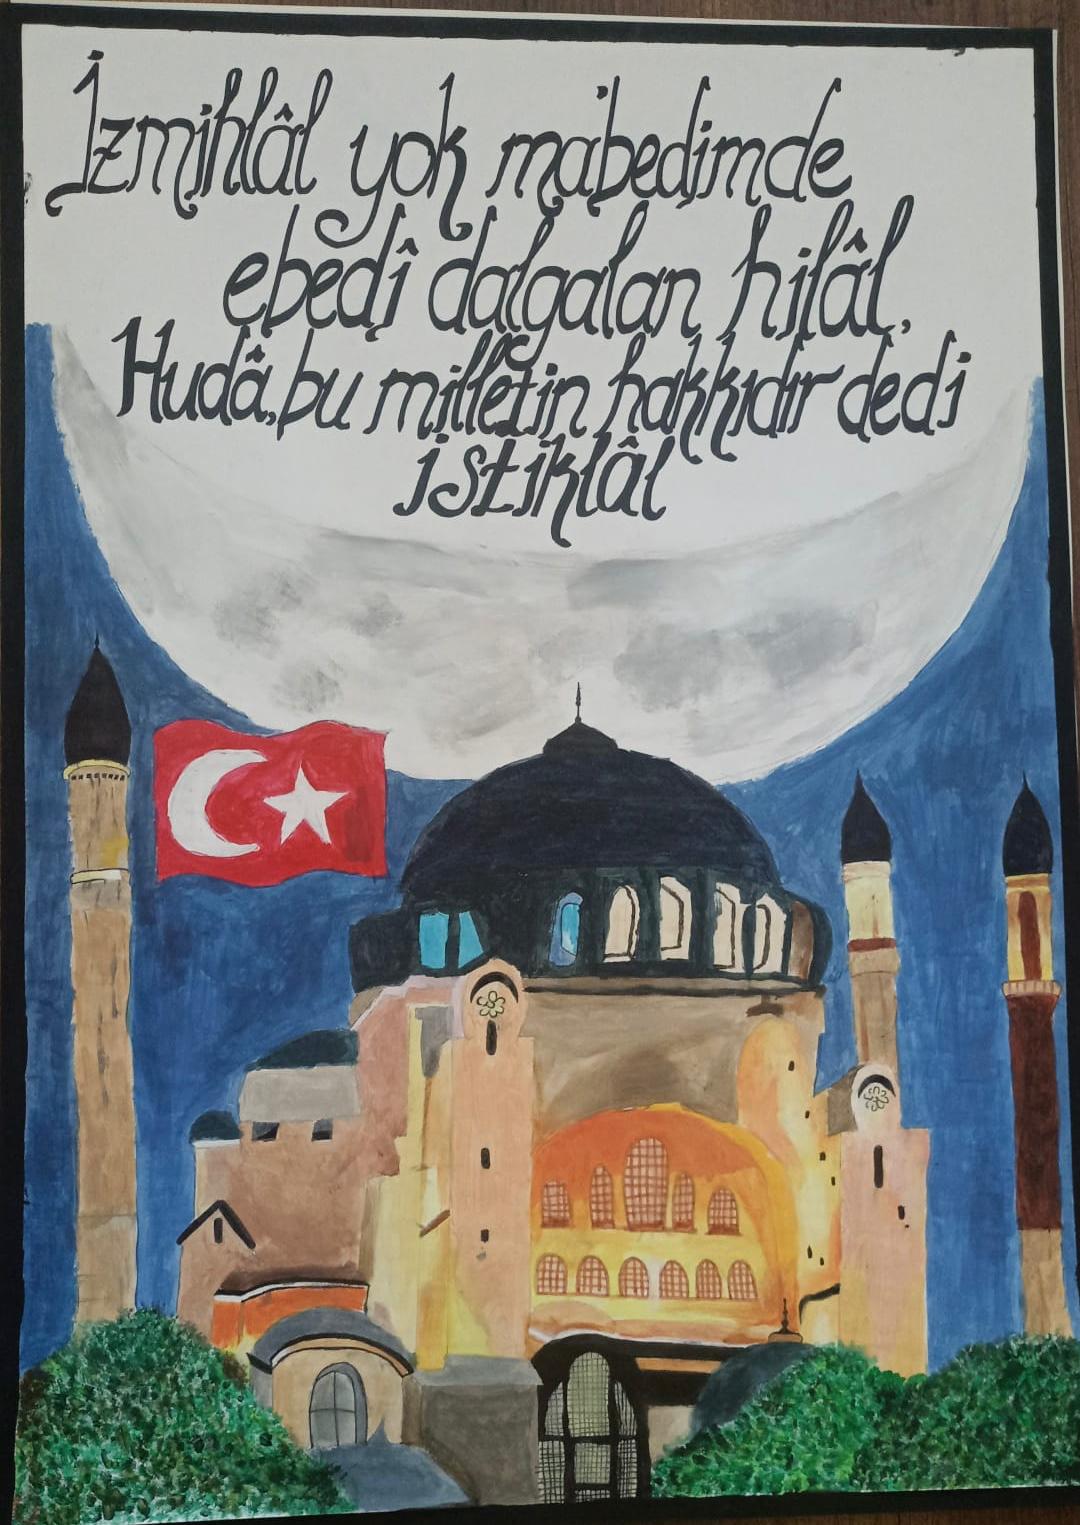 İzmihlâl yok mâbedimde
ebedî dalgalan hilâl,
Hudâ, bu milletin hakkıdır dedi
istiklâl